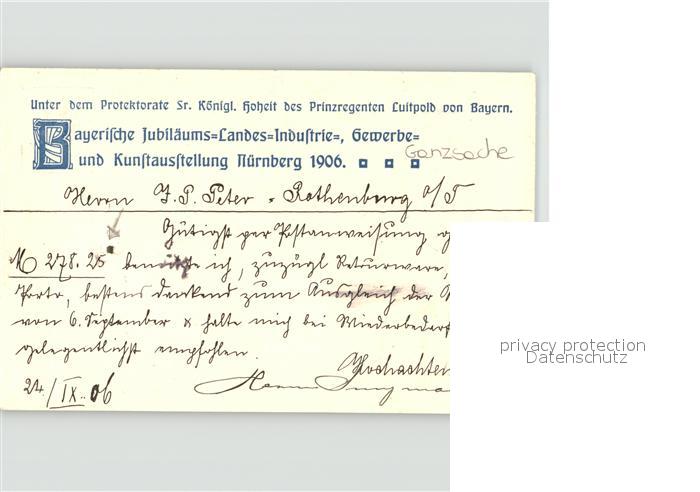 Unter dem Protektorate Sr. Königl. Hoheit des Prinzregenten Luitpold von Bayern.
Bayerische Jubiläums=Landes=Industrie=, Gewerbe=
und Kunstausstellung Nürnberg 1906.
Ganzsache
Herrn J. P. Peter - Rothenburg o/T
Gütigst per Postanweisung
M 278.25 ich, zuzügl Retourware,
Porto, bestens dankend zum Ausgleich der
von 6. September & halte mich bei Wiederbedarf
gelegentlichst empfohlen.
Hochachten
24./IX. 06
privacy protection
Datenschutz